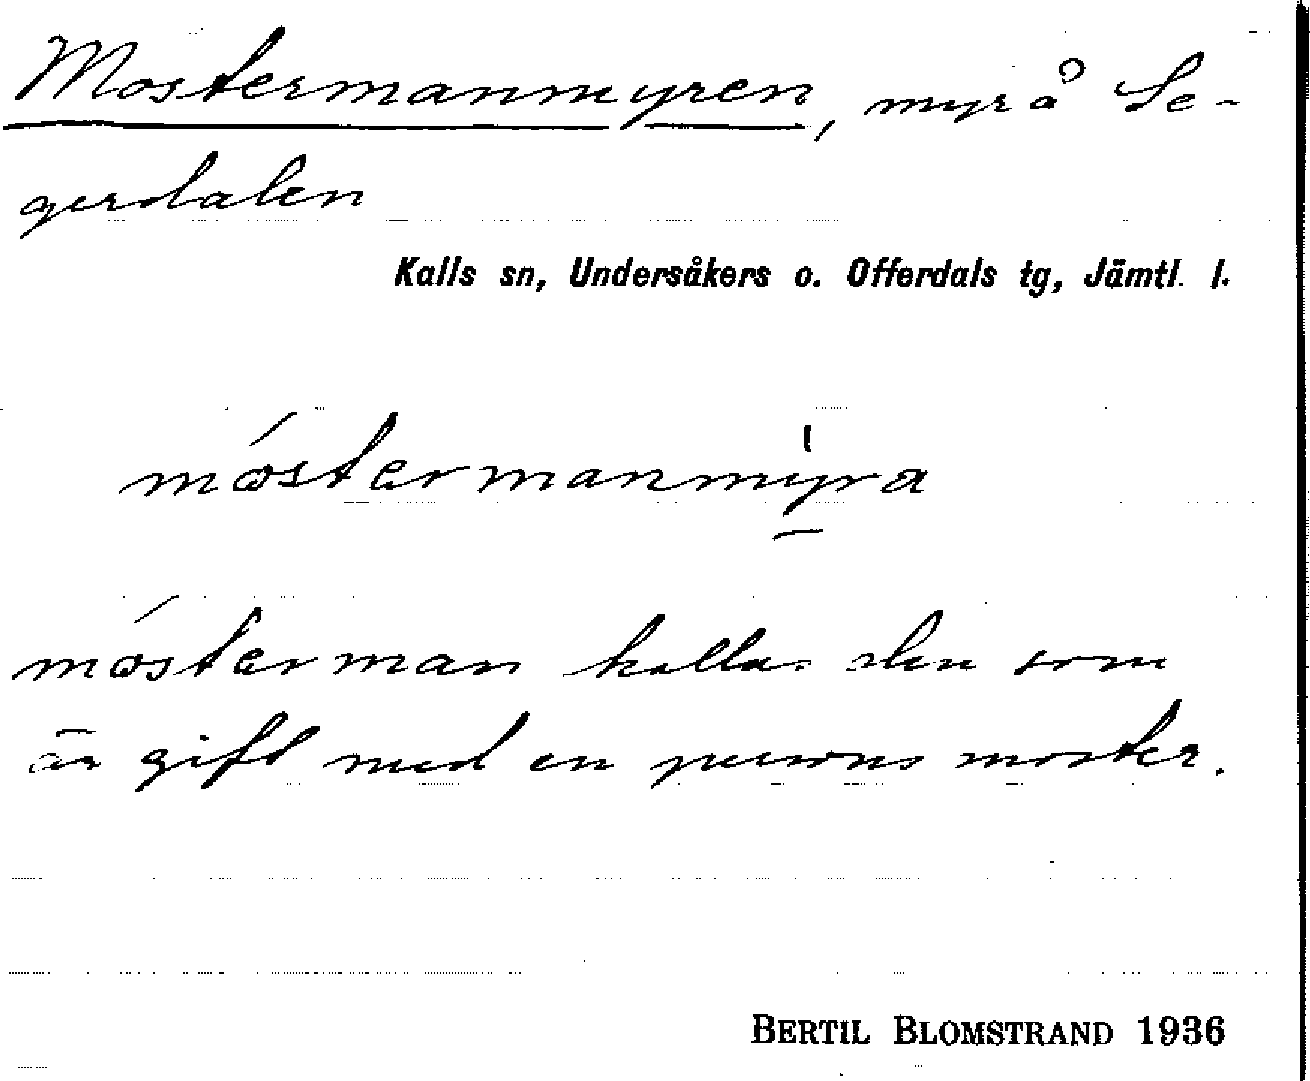 Mostermanmyren, myr å Se-
gerdalen
Kalls sn, Undersåkers o. Offerdals tg, Jämtl. l.
móstermanmy̱ra
mósterman kallas den som
är gift med en persons moster.
BERTIL BLOMSTRAND 1936